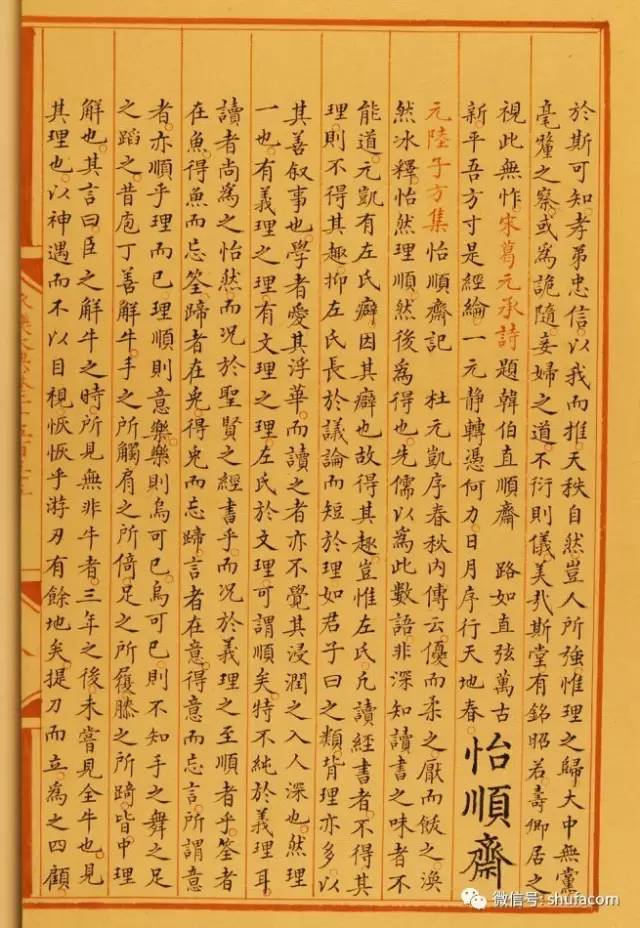 於斯可知孝弟忠信以我而推天秩自然豈人所強惟理之歸大中無黨
毫釐之察或為詭隨妾婦之道不衍則儀美哉斯堂有銘昭若壽卿居之
視此無怍宋葛元承詩題韓伯直順齋 路如直弦萬古
新平吾方寸是經綸一元静轉憑何力日月序行天地春 怡順齋
元陸子方集怡順齋記 杜元凱序春秋内傳云優而柔之厭而飫之渙
然冰釋怡然理順然後為得也先儒以為此數語非深知讀書之味者不
能道元凱有左氏癖因其癖也故得其趣豈惟左氏凢讀經書者不得其
理則不得其趣抑左氏長於議論而短於理如君子曰之類背理亦多以
其善叙事也學者愛其浮華而讀之者亦不覺其浸潤之入人深也然理
一也有義理之理有文理之理左氏於文理可謂順矣特不純於義理耳
讀者尚為之怡然而况於聖賢之經書乎而况於義理之至順者乎筌者
在魚得魚而忘筌蹄者在兎得兎而忘蹄言者在意得意而忘言所謂意
者亦順乎理而已理順則意樂樂則烏可已烏可已則不知手之舞之足
之蹈之昔庖丁善解牛手之所觸肩之所倚足之所履膝之所踦皆中理
解也其言曰臣之解牛之時所見無非牛者三年之後未嘗見全牛也見
其理也以神遇而不以目視恢恢乎游刃有餘地矣提刀而立為之四顧
微信号: shufacom